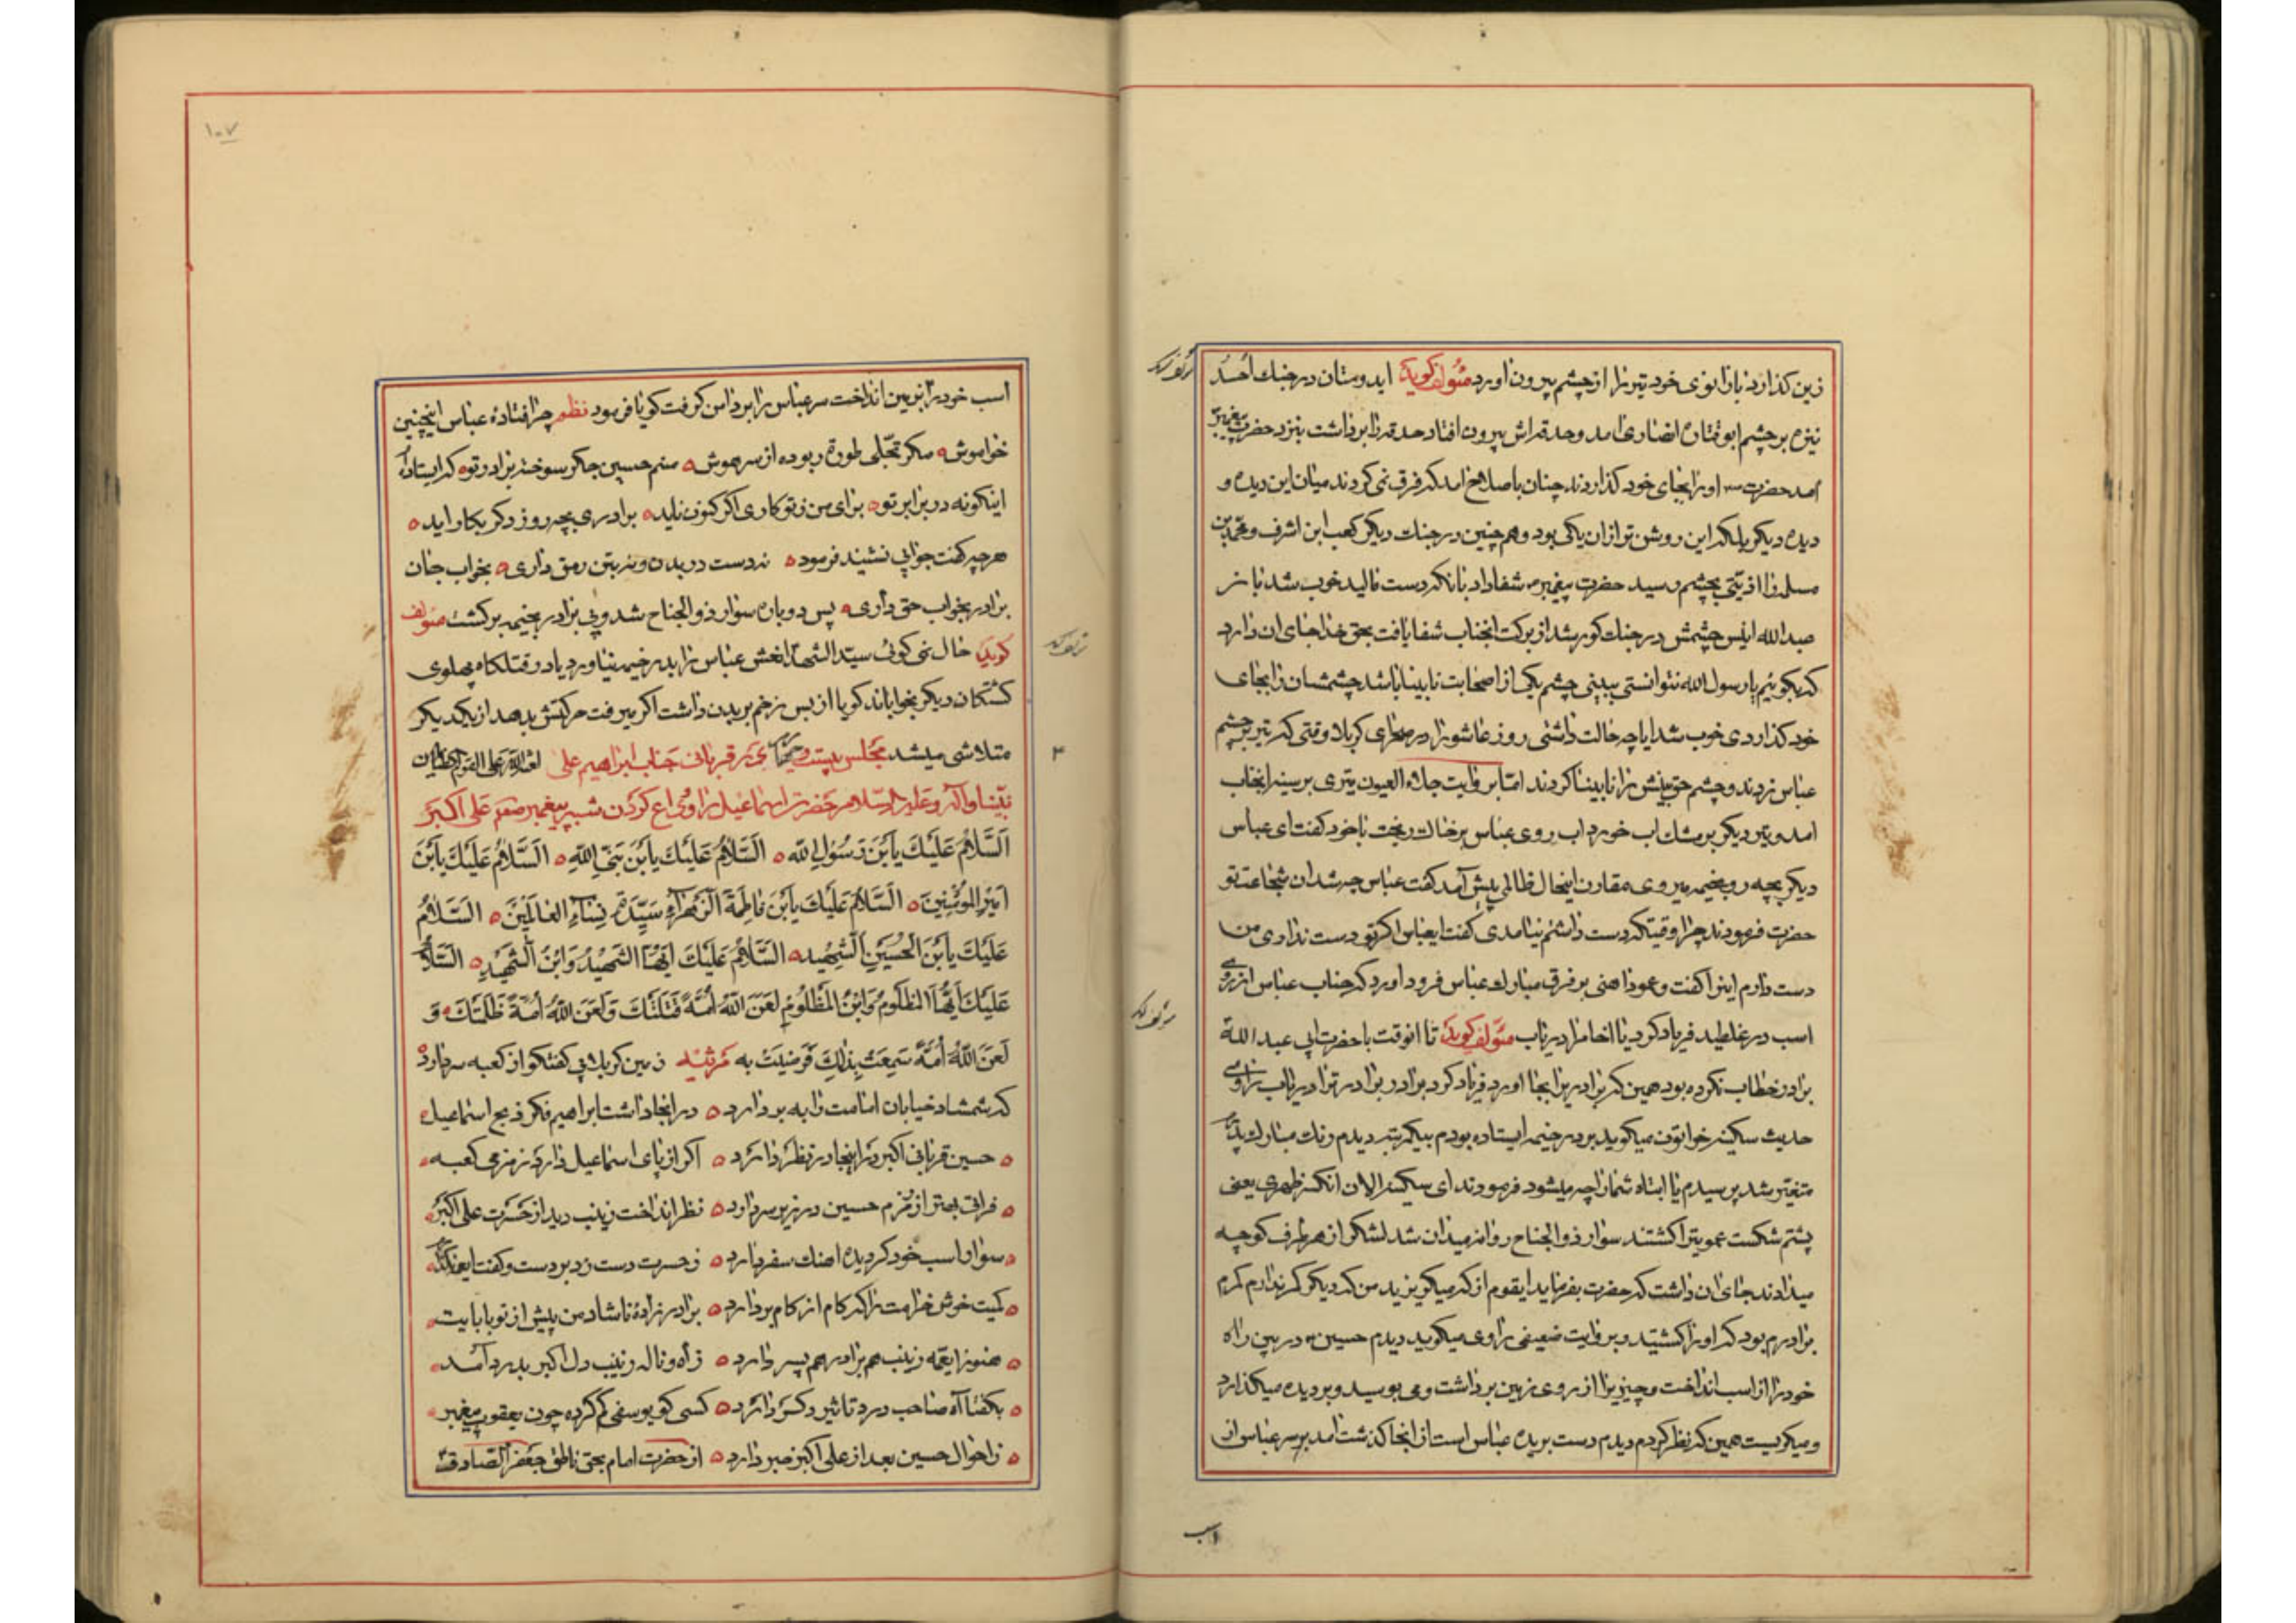 زین کذارد بازانوی خود تیر را از چشم بیرون اورد مؤلف کوید ایدوستان در جنك اُحُد
نیزه بر چشم ابوقتاده انصاری امد و حدقه‌اش بیرون افتاد حدقه را برداشت بنزد حضرت پیغمبر
امد حضرت او را بجای خود کذاردند چنان باصلاح امد که فرق نمی کردند میان این دیده و
دیده دیکر بلکه این روشن تر از ان یکی بود و هم چنین در جنك دیکر کعب ابن اشرف و محمد بن
مسلمه را اذیتی بچشم رسید حضرت پیغمبر شفا داد بانکه دست مالید خوب شد باز
عبدالله انیس چشمش در جنك کور شد از برکت انجناب شفا یافت بحق خدا جای ان دارد
که بکوئیم یا رسول الله نتوانستی ببینی چشم یکی از اصحابت نابینا باشد چشمشان را بجای
خود کذاردی خوب شد ایا چه حالت داشتی روز عاشورا در صحرای کربلا وقتی که تیر بر چشم
عباس زدند و چشم حق بینش را نابینا کردند امّا بروایت جلاء العیون تیری بر سینه انجناب
امد و تیر دیکر بر مشك اب خورد اب روی عباس بر خاك ریخت با خود کفت ای عباس
دیکر بچه رو بخیمه میروی مقارن اینحال ظالمی پیش آمد کفت عباس چه شد ان شجاعت تو
حضرت فرمودند چرا وقتیکه دست داشتم نیامدی کفت ایعباس اکر تو دست نداری من
دست دارم اینرا کفت و عمود اهنی بر فرق مبارك عباس فرود اورد که جناب عباس از روی
اسب در غلطید فریاد کرد یا اخا مرا دریاب مؤلف کوید تا انوقت با حضرت ابی عبد الله
برادر خطاب نکرده بود همین که برادر را بجا اورد فریاد کرد برادر برادرت را دریاب راوی
حدیث سکینه خواتون میکوید بر در خیمه ایستاده بودم بیکمرتبه دیدم رنك مبارك پدرم
متغیر شد پرسیدم یا ابتاه شما را چه میشود فرمودند ای سکینه الان انکسر ظهری یعنی
پشتم شکست عمویترا کشتند سوار ذوالجناح روانه میدان شد لشکر از هر طرف کوچه
میدادند جای ان داشت که حضرت بفرماید ایقوم از که میکریزید من که دیکر کمر ندارم کمرم
برادرم بود که او را کشتید و بروایت ضعیفی راوی میکوید دیدم حسین در بین راه
خود را از اسب انداخت و چیزیرا از روی زمین برداشت و می بوسید و بر دیده میکذارد
و میکریست همین که نظر کردم دیدم دست بریده عباس است از انجا کذشت امد بر سر عباس از
اسب
۱۰۷
اسب خود را بزمین انداخت سر عباس را بر دامن کرفت کویا فرمود نظم چرا فتادهٔ عباس اینچنین
خواموش مکر تجلّی طور ربوده از سر هوش منم حسین جکر سوخته برادر تو که ایستاده
اینکونه در برابر تو برای من ز تو کاری اکر کنون ناید برادری بچه روز دکر بکار اید
هرچه کفت جوابی نشنید فرمود نه دست در بدن و نه بتن رمق داری بخواب جان
برادر بخواب حق داری پس دوباره سوار ذوالجناح شد و بی برادر بخیمه برکشت مؤلف
کوید حال نمی کوئی سید الشهدا نعش عباس را بدر خیمه نیاورد یا در قتلکاه پهلوی
کشتکان دیکر بخواباند کویا از بس زخم بریدن داشت اکر میرفت حرکتش بدهد از یکدیکر
متلاشی میشد مجلس بیست و در قربانی جناب ابراهیم علی لعنة الله علی القوم الظالمین
نبینا وآله وعلیه السلام حضرت اسماعیل را و وداع کردن شبیه پیغمبر علی اکبر
اَلسَّلامُ عَلَیْكَ یاَبْنَ رَسُولِ اللهِ اَلسَّلامُ عَلَیْكَ یاَبْنَ نَبِیِّ اللهِ اَلسَّلامُ عَلَیْكَ یاَبْنَ
اَمِیرِ الْمُؤْمِنِینَ اَلسَّلامُ عَلَیْكَ یاَبْنَ فاطِمَةَ الزَّهْراءِ سَیِّدَةِ نِساءِ الْعالَمِینَ اَلسَّلامُ
عَلَیْكَ یاَبْنَ الْحُسَیْنِ الشَّهِیدِ اَلسَّلامُ عَلَیْكَ اَیُّهَا الشَّهِیدُ وَابْنُ الشَّهِیدِ اَلسَّلامُ
عَلَیْكَ اَیُّهَا الْمَظْلُومُ وَابْنُ الْمَظْلُومِ لَعَنَ اللهُ اُمَّةً قَتَلَتْكَ وَلَعَنَ اللهُ اُمَّةً ظَلَمَتْكَ وَ
لَعَنَ اللهُ اُمَّةً سَمِعَتْ بِذلِكَ فَرَضِیَتْ بِه مرثیه زمین کربلا پی کفتکو از کعبه سر دارد
که شمشاد خیابان امامت را به بر دارد در انجا داشت ابراهیم فکر ذبح اسماعیل
حسین قربانی اکبر در اینجا در نظر دارد اکر از پای اسماعیل دارد زمزمی کعبه
فراتی بهتر از زمزم حسین در زیر سر دارد نظر انداخت زینب دید از حسرت علی اکبر
سوار اسب خود کردیده اهنك سفر دارد ز حسرت دست زد بر دست و کفت
کمیت خوش خرامت را که کام از کام بردارد برادر زادهٔ ناشاد من پیش از تو بابایت
هنوز ایعمه زینب هم برادر هم پسر دارد ز آه و ناله زینب دل اکبر بدرد آمد
بکفتا آه صاحب درد تاثیر دکر دارد کسی کو یوسفی کم کرده چون یعقوب پیغمبر
ز احوال حسین بعد از علی اکبر خبر دارد از حضرت امام بحق ناطق جعفر الصادق